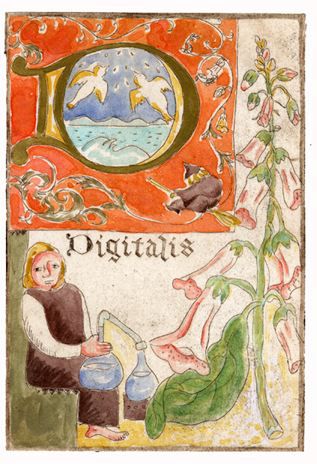 D
Digitalis